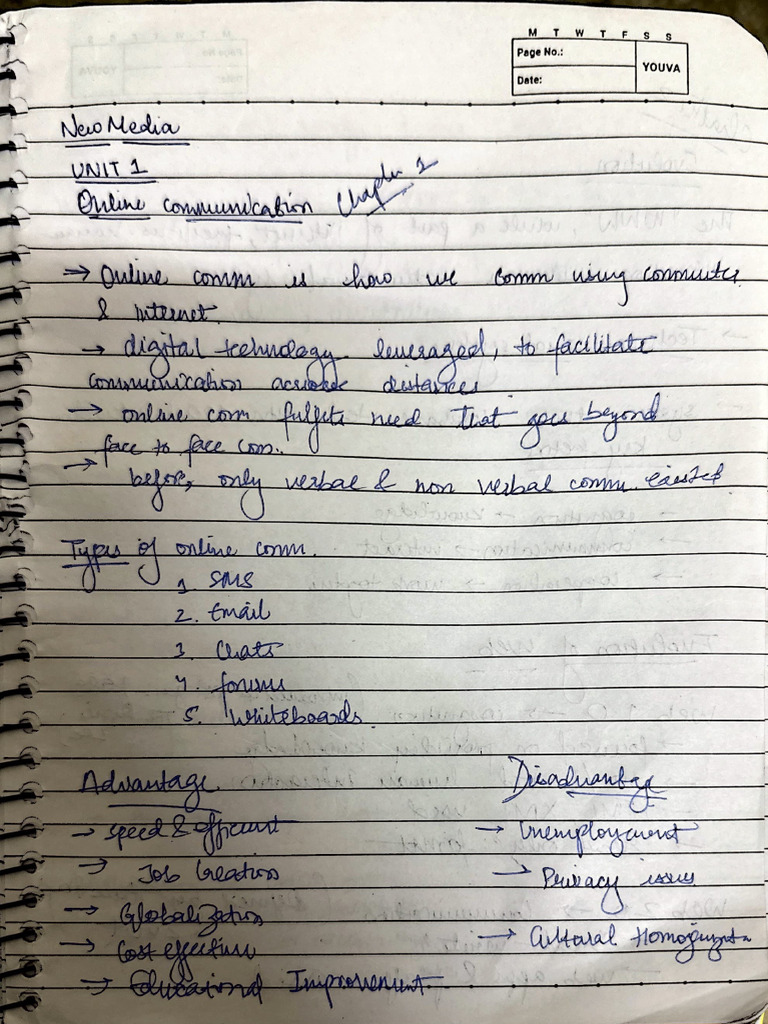 M T W T F S S
Page No.:
YOUVA
Date:
New Media
UNIT 1
Online communication Chapter 1
→ Online comm is how we comm using computer
& internet.
→ digital technology leveraged, to facilitate
communication across distances
→ online com fulfills need that goes beyond
face to face com.
→ before, only verbal & non verbal comm. existed
Types of online comm.
1. SMS
2. Email
3. Chats
4. forums
5. Whiteboards.
Advantage Disadvantage
→ speed & efficient → Unemployment
→ Job Creation → Privacy issues
→ Globalization
→ Cost effective → Cultural
→ Educational Improvement